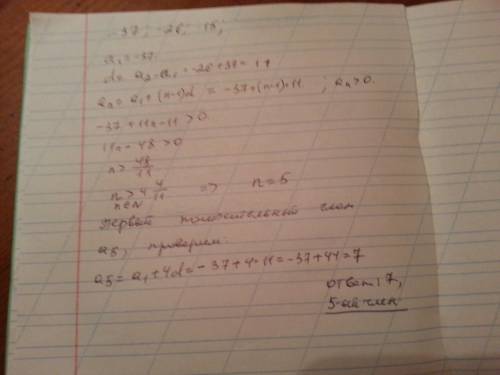 -37; -26; -15;
a₁ = -37
d = a₂ - a₁ = -26 + 37 = 11
aₙ = a₁ + (n-1)d = -37 + (n-1)·11 ; aₙ > 0.
-37 + 11n - 11 > 0
11n - 48 > 0
n > 48/11
n > 4 4/11 => n = 5
n ∈ N
Первый положительный член
a5, проверяем:
a5 = a₁ + 4d = -37 + 4·11 = -37 + 44 = 7
ответ: 7,
5-ый член